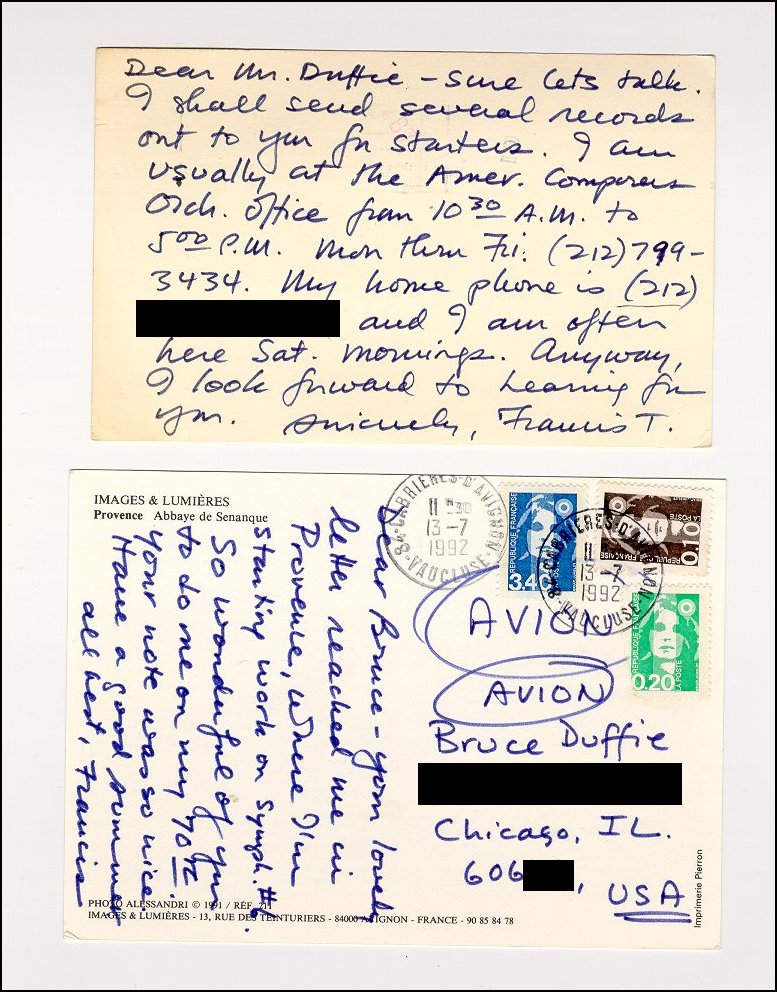 Dear Mr. Duffie – sure lets talk.
I shall send several records
out to you for starters. I am
usually at the Amer. Composers
Orch. Office from 10 30 A.M. to
5 00 P.M. Mon thru Fri. (212) 799-
3434. My home phone is (212)
and I am often
here Sat. mornings. Anyway,
I look forward to hearing fm
you. Sincerely, Francis T.
IMAGES & LUMIÈRES
Provence Abbaye de Senanque
Dear Bruce – your lovely
letter reached me in
Provence, where I'm
starting work on Symph. #6.
So wonderful of you
to do me on my 70th.
Your note was so nice.
Have a good summer
all best, Francis
PHOTO ALESSANDRI © 1991 / RÉF. 211
IMAGES & LUMIÈRES - 13, RUE DES TEINTURIERS - 84000 AVIGNON - FRANCE - 90 85 84 78
84-CABRIERES-D'AVIGNON
11 H 30
13-7
1992
VAUCLUSE
REPUBLIQUE FRANÇAISE
3,40
LA POSTE
REPUBLIQUE FRANÇAISE
0,10
84-CABRIERES-D'AVIGNON
11
13-7
1992
VAUCLUSE
REPUBLIQUE
LA POSTE
0,20
AVION
AVION
Bruce Duffie
Chicago, IL.
606 ,
USA
Imprimerie Pierron